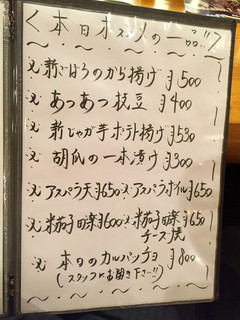 <本日オススメの一品!!>
新ごぼうのから揚げ ¥500
あつあつ枝豆 ¥400
新じゃが芋ポテト揚げ ¥530
胡瓜の一本漬け ¥300
アスパラ天 ¥650 アスパラボイル ¥650
米茄子田楽 ¥600 米茄子田楽 ¥650
チーズ焼
本日のカルパッチョ ¥800
(スタッフにお聞き下さい!!)